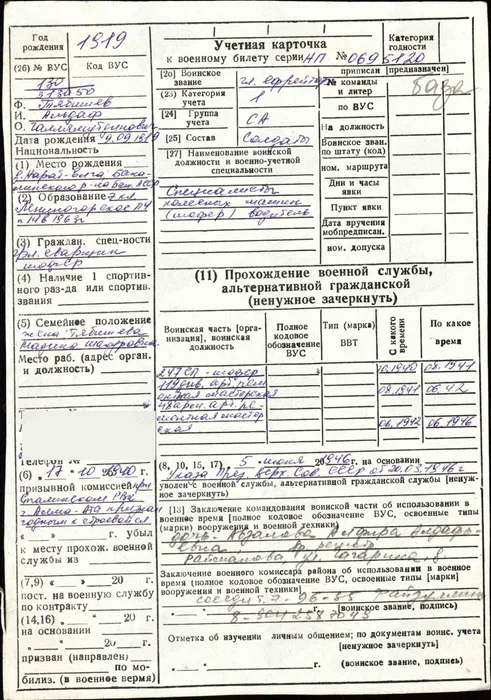 Год
рождения
1919
(26) № ВУС
Код ВУС
130
Ф. Тябишев
И. Альдаф
О.
Дата рождения 9.09.19
Национальность
(1) Место рождения
(2) Образование 7 кл.
(3) Граждан. спец-ности
шофер
(4) Наличие 1 спортив-
ного раз-да или спортив.
звания
(5) Семейное положение
жена Тябишева
Место раб. (адрес орган.
и должность)
Телефон №
(6) " 17 " 10 1940 г.
призывной комиссией при
Сталинском РВК
г Алма-Ата признан
годным к строевой сл.
" " г. убыл
к месту прохож. военной
службы из
(7,9) « » 20 г.
пост. на военную службу
по контракту
(14,16) « » 20 г.
на основании
" " 20 г.
призван (направлен) по
мобилиз. (в военное время)
Учетная карточка
к военному билету серии НП № 0695120
[20] Воинское звание гл. ефрейтор
(23) Категория учета 1
[24] Группа учета СА
[25] Состав Солдаты
[27] Наименование воинской
должности и военно-учетной
специальности
Специалисты
колесных машин
(шофер) водитель
Категория
годности
приписан (предназначен)
№ команды
и литер
по ВУС
На должность
Воинское зван.
по штату (код)
ном. маршрута
Дни и часы
явки
Пункт явки
Дата вручения
мобпредписан.
ном. допуска
(11) Прохождение военной службы,
альтернативной гражданской
(ненужное зачеркнуть)
Воинская часть [орга-
низация], воинская
должность
Полное
кодовое
обозначение
ВУС
Тип (марка)
ВВТ
С какого
времени
По какое
время
247 СП - шофер 10.1940 08.1941
119 див. арт. рем
онтная мастерская 08.1941 06.42
48 арм. арт. ре
монтная мастер 06.1942 06.1946
ская
(8, 10, 15, 17) 5 июня 1946 г. на основании
Указа През. Верх. Сов СССР от 20.03.1946 г
уволен с военной службы, альтернативной гражданской службы [ненуж-
ное зачеркнуть]
[13] Заключение командования воинской части об использовании в
военное время [полное кодовое обозначение ВУС, освоенные типы
(марка) вооружения и военной техники]
дочь
ул. Гагарина
Заключение военного комиссара района об использовании в военное
время (полное кодовое обозначение ВУС, освоенные типы [марки]
вооружения и военной техники)
[воинское звание, подпись)
Отметка об изучении личным общением; по документам воинс. учета
[ненужное зачеркнуть]
" " г. (воинское звание, подпись)